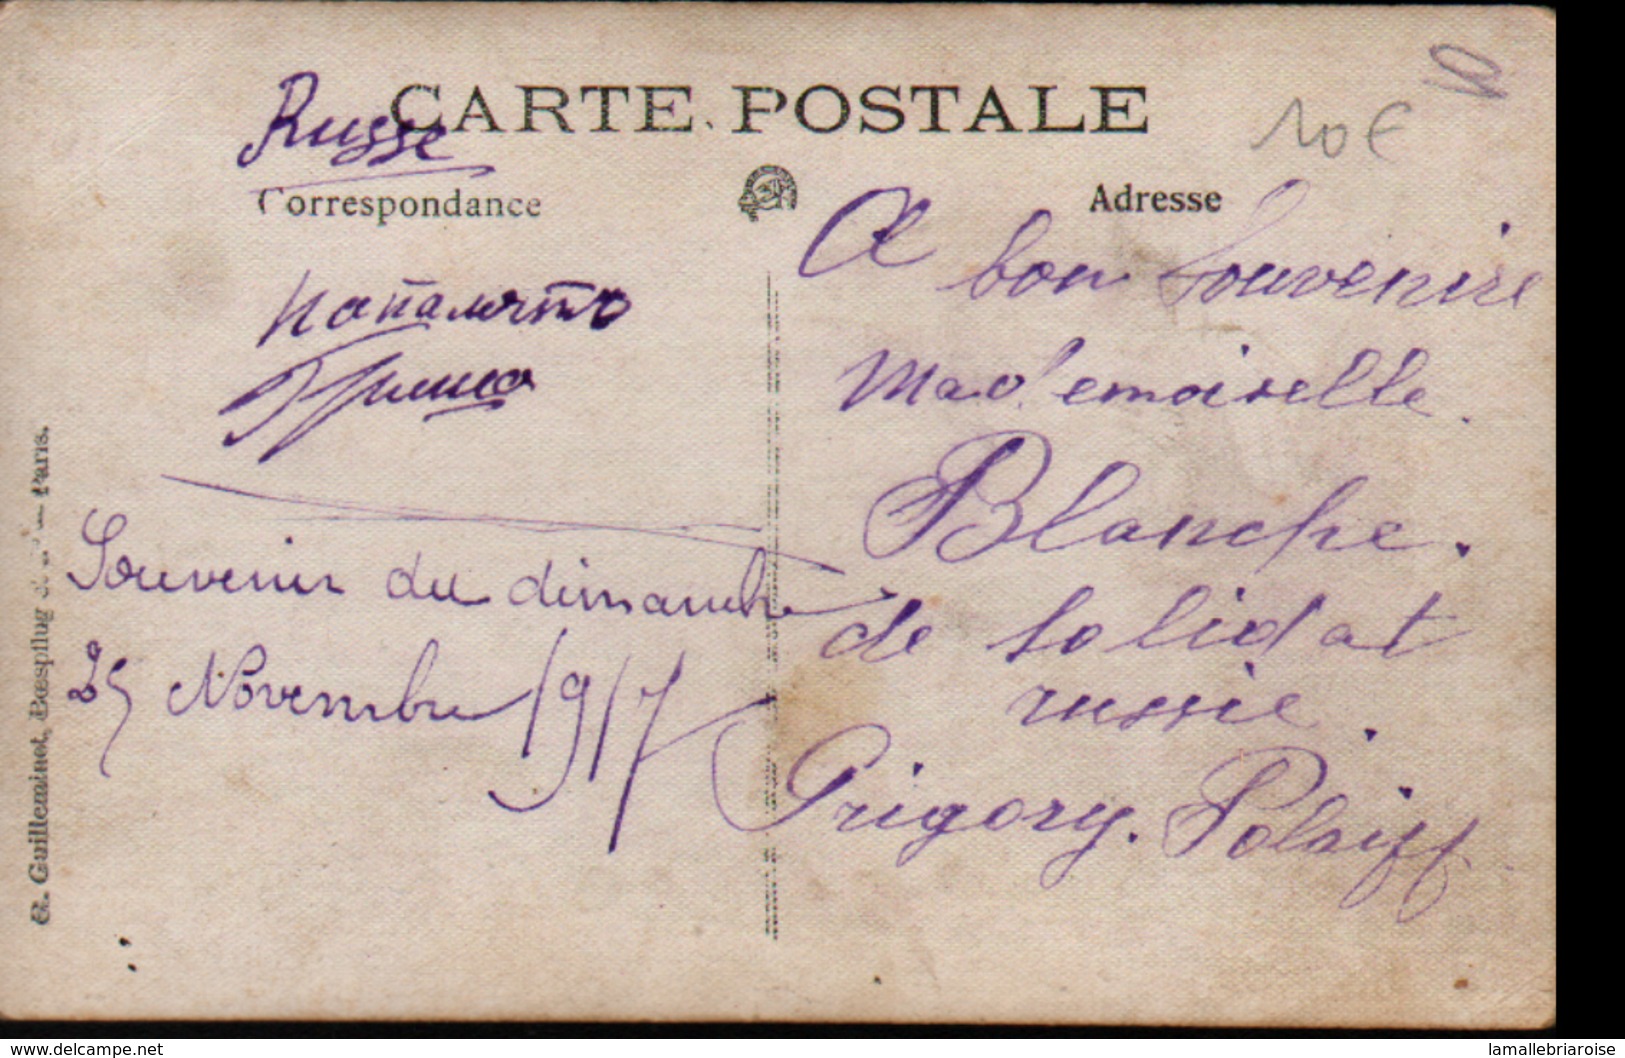 CARTE POSTALE
10€
Russe
Correspondance
Adresse
Напаметъ
Гриша
Souvenir du dimanche
25 Novembre 1917
A
bon Souvenire
Mademoiselle.
Blanche.
de solidat
russie.
Grigory. Polaiff
G. Guilleminot, Bœspflug et Cie — Paris.
www.delcampe.net
lamallebriaroise